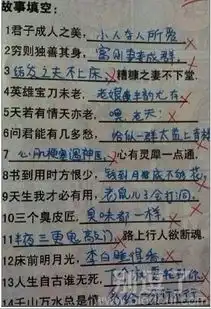 故事填空:
1君子成人之美, 小人夺人所爱
2穷则独善其身, 富则妻妾成群.
3 结发之夫不上床, 糟糠之妻不下堂.
4英雄宝刀未老, 老娘风韵尤存.
5天若有情天亦老,
6问君能有几多愁, 恰似一群太监上青楼
7 心心有灵犀一点通.
8书到用时方恨少, 钱到月底不够花.
9天生我才必有用, 老鼠儿子会打洞.
10三个臭皮匠, 臭味都一样.
11半夜三更鬼敲门, 路上行人欲断魂.
12床前明月光, 李白睡得香.
13人生自古谁无死,
14千山万水总是情